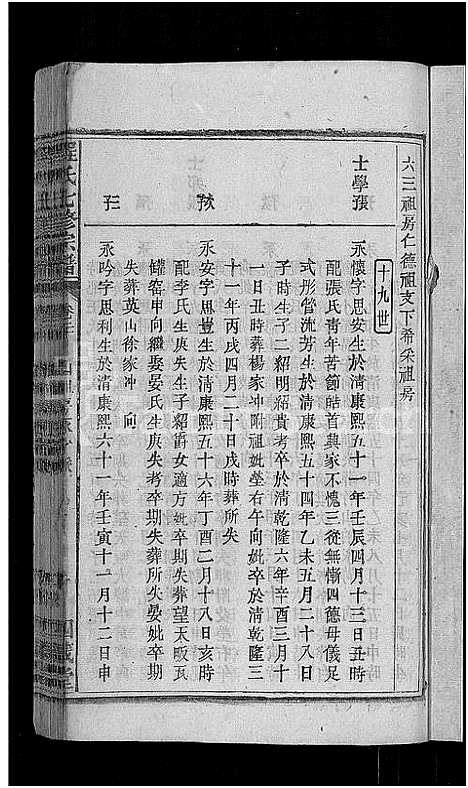 六三祖房仁德祖支下希采祖房
十九世
士學張
永懷字思安生於清康熙五十一年壬辰四月十三日丑時
配張氏青年苦節皓首典家不愧三從無慚四德母儀足
式彤管流芳生於清康熙五十四年乙未五月二十八日
子時生子二紹明紹貴考卒於清乾隆六年辛酉三月十
一日丑時葬楊家冲附祖妣塋右午向妣卒於清乾隆三
十一年丙戌四月二十日戌時葬所失
永安字思豐生於清康熙五十六年丁酉二月十八日亥時
配李氏生庚失生子紹爵女適方妣卒期失葬望天畈瓦
罐窑申向繼娶晏氏生庚失考卒期失葬所失晏妣卒期
失葬英山徐家冲 向
永吟字思利生於清康熙六十一年壬寅十一月十二日申
氏七修宗譜